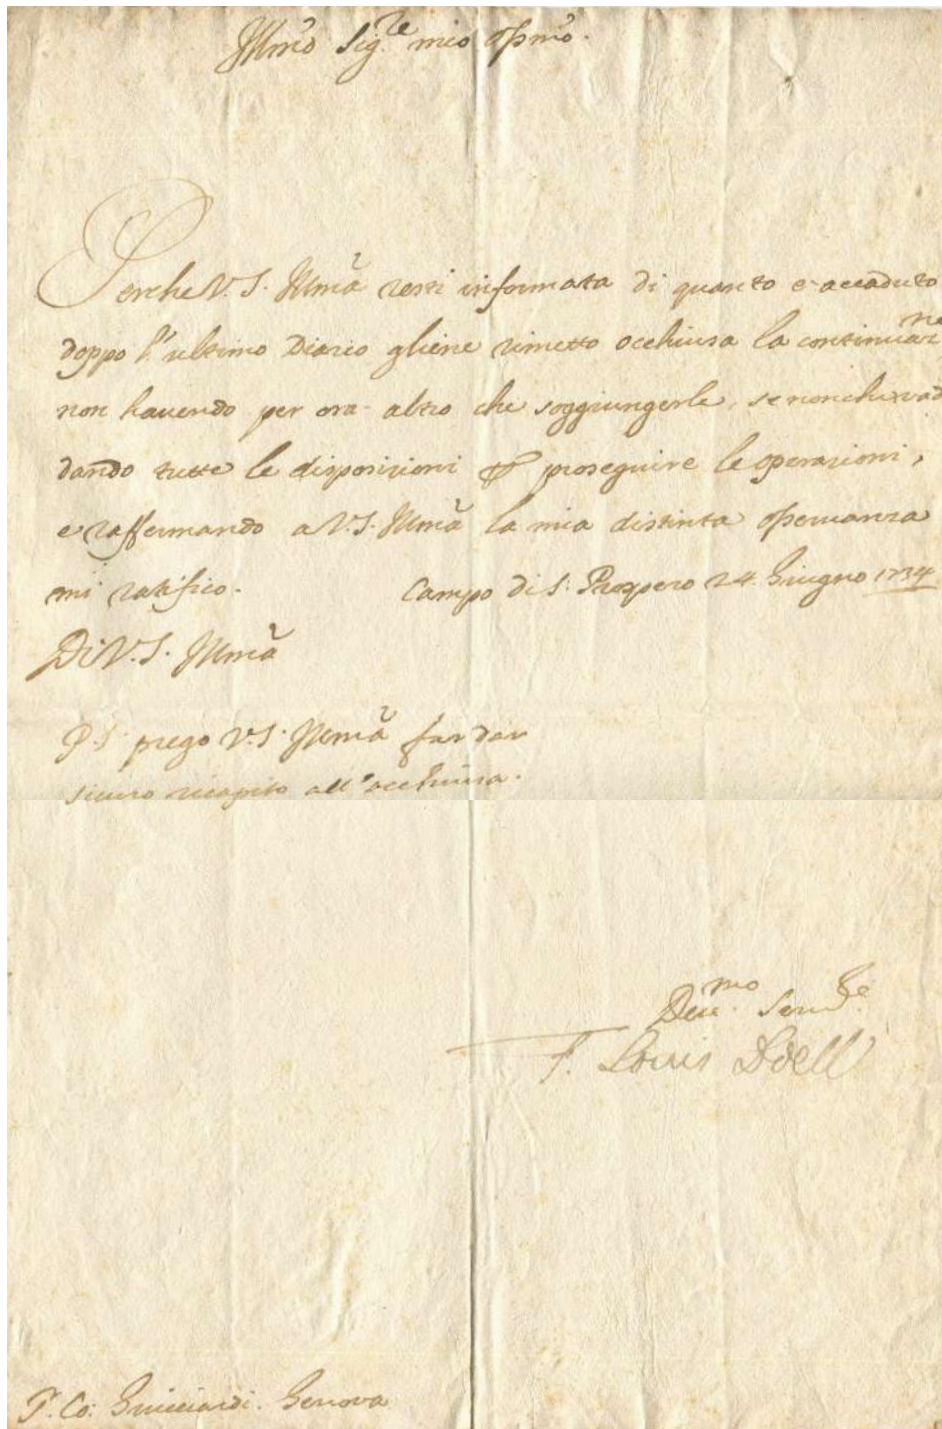 Illmo Sig.re mio Ossmo.
Perche V. S. Illma resti informata di quanto è accaduto
doppo l'ultimo Diario gliene rimetto acchiusa la continuaz.ne
non havendo per ora altro che soggiungerle, se non che vad
dando tutte le disposizioni p proseguire le operazioni,
e raffermando a V. S. Illma la mia distinta osservanza
mi ratifico. Campo di S. Prospero 24 Giugno 1734
Di V. S. Illma
P.S. prego V. S. Illma far dar
sicuro ricapito all'acchiusa.
Dev.mo Serv.re
F. Louis
S. Co: Guicciardi. Genova